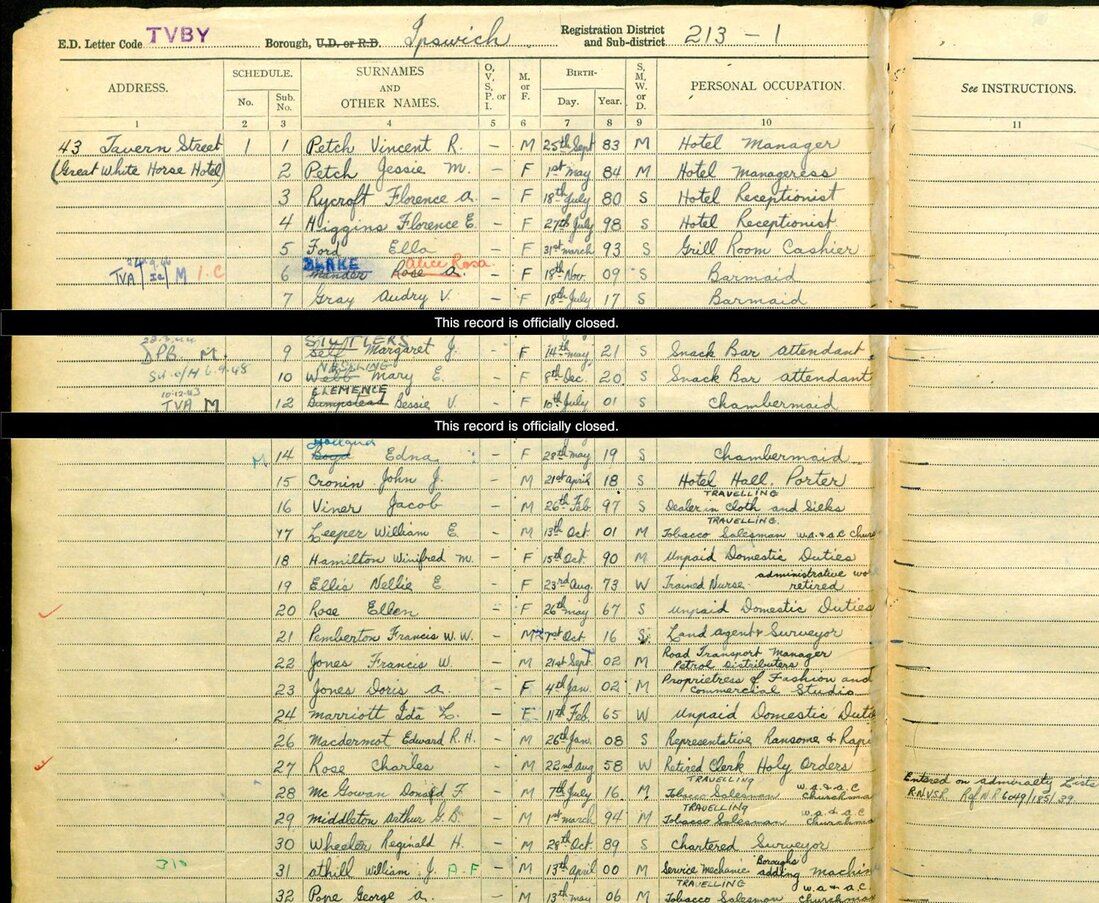 E.D. Letter Code TVBY Borough, U.D. or R.D. Ipswich Registration District and Sub-district 213 - 1
ADDRESS. SCHEDULE. No. Sub. No. SURNAMES AND OTHER NAMES. O, V, S, P, or I. M. or F. BIRTH- Day. Year. S, M, W, or D. PERSONAL OCCUPATION. See INSTRUCTIONS.
1 2 3 4 5 6 7 8 9 10 11
43 Tavern Street 1 1 Petch Vincent R. - M 25th Sept 83 M Hotel Manager
(Great White Horse Hotel) 2 Petch Jessie M. - F 1st May 84 M Hotel Manageress
3 Rycroft Florence A. - F 18th July 80 S Hotel Receptionist
4 Higgins Florence E. - F 27th July 98 S Hotel Receptionist
5 Ford Ella - F 31st March 93 S Grill Room Cashier
BLAKE Alice Rosa
TVA M I.C 6 Mander Rose A. - F 18th Nov. 09 S Barmaid
7 Gray Audry V. - F 18th July 17 S Barmaid
This record is officially closed.
DPB M. 9 Self Margaret J. - F 14th May 21 S Snack Bar attendant
6.9.48 10 Webb Mary E. - F 8th Dec. 20 S Snack Bar attendant
10-12-43 CLEMENCE
TVA M 12 Bumpstead Bessie V. - F 10th July 01 S Chambermaid
This record is officially closed.
Holland
M 14 Boyd Edna - F 28th May 19 S Chambermaid
15 Cronin John J. - M 21st April 18 S Hotel Hall Porter
TRAVELLING
16 Viner Jacob - M 26th Feb. 97 S Dealer in Cloth and Silks
TRAVELLING.
17 Leeper William E. - M 13th Oct. 01 M Tobacco Salesman W.A. & A.C
18 Hamilton Winifred M. - F 15th Oct. 90 M Unpaid Domestic Duties
administrative
19 Ellis Nellie E. - F 23rd Aug. 73 W Trained Nurse retired
20 Rose Ellen - F 26th May 67 S Unpaid Domestic Duties
21 Pemberton Francis W. W. - M Oct. 16 S Land Agent & Surveyor
Road Transport Manager
22 Jones Francis W. - M 21st Sept 02 M Petrol Distributers
Proprietress of Fashion and
23 Jones Doris A. - F 4th Jan. 02 M Commercial Studio
24 Marriott Ida L. - F 11th Feb. 65 W Unpaid Domestic Duti
26 Macdermot Edward R. H. - M 26th Jan. 08 S Representative Ransome & Rapi
27 Rose Charles - M 22nd Aug 58 W Retired Clerk Holy Orders
TRAVELLING Entered on Admiralty Lists
28 Mc Gowan Donald F. - M 7th July 16. M Tobacco Salesman W.A. & A.C Churchma R.N.V.S.R.
TRAVELLING
29 Middleton Arthur G. B. - M 1st March 94 M Tobacco Salesman W.A. & A.C Churchma
30 Wheeler Reginald H. - M 28th Oct. 89 S Chartered Surveyor
Boroughs
31 Athill William J. A.F - M 13th April 00 M Service Mechanic adding Machin
TRAVELLING
32 Pope George A. - M 13th May 06 M Tobacco Salesman W.A & A.C. Churchma